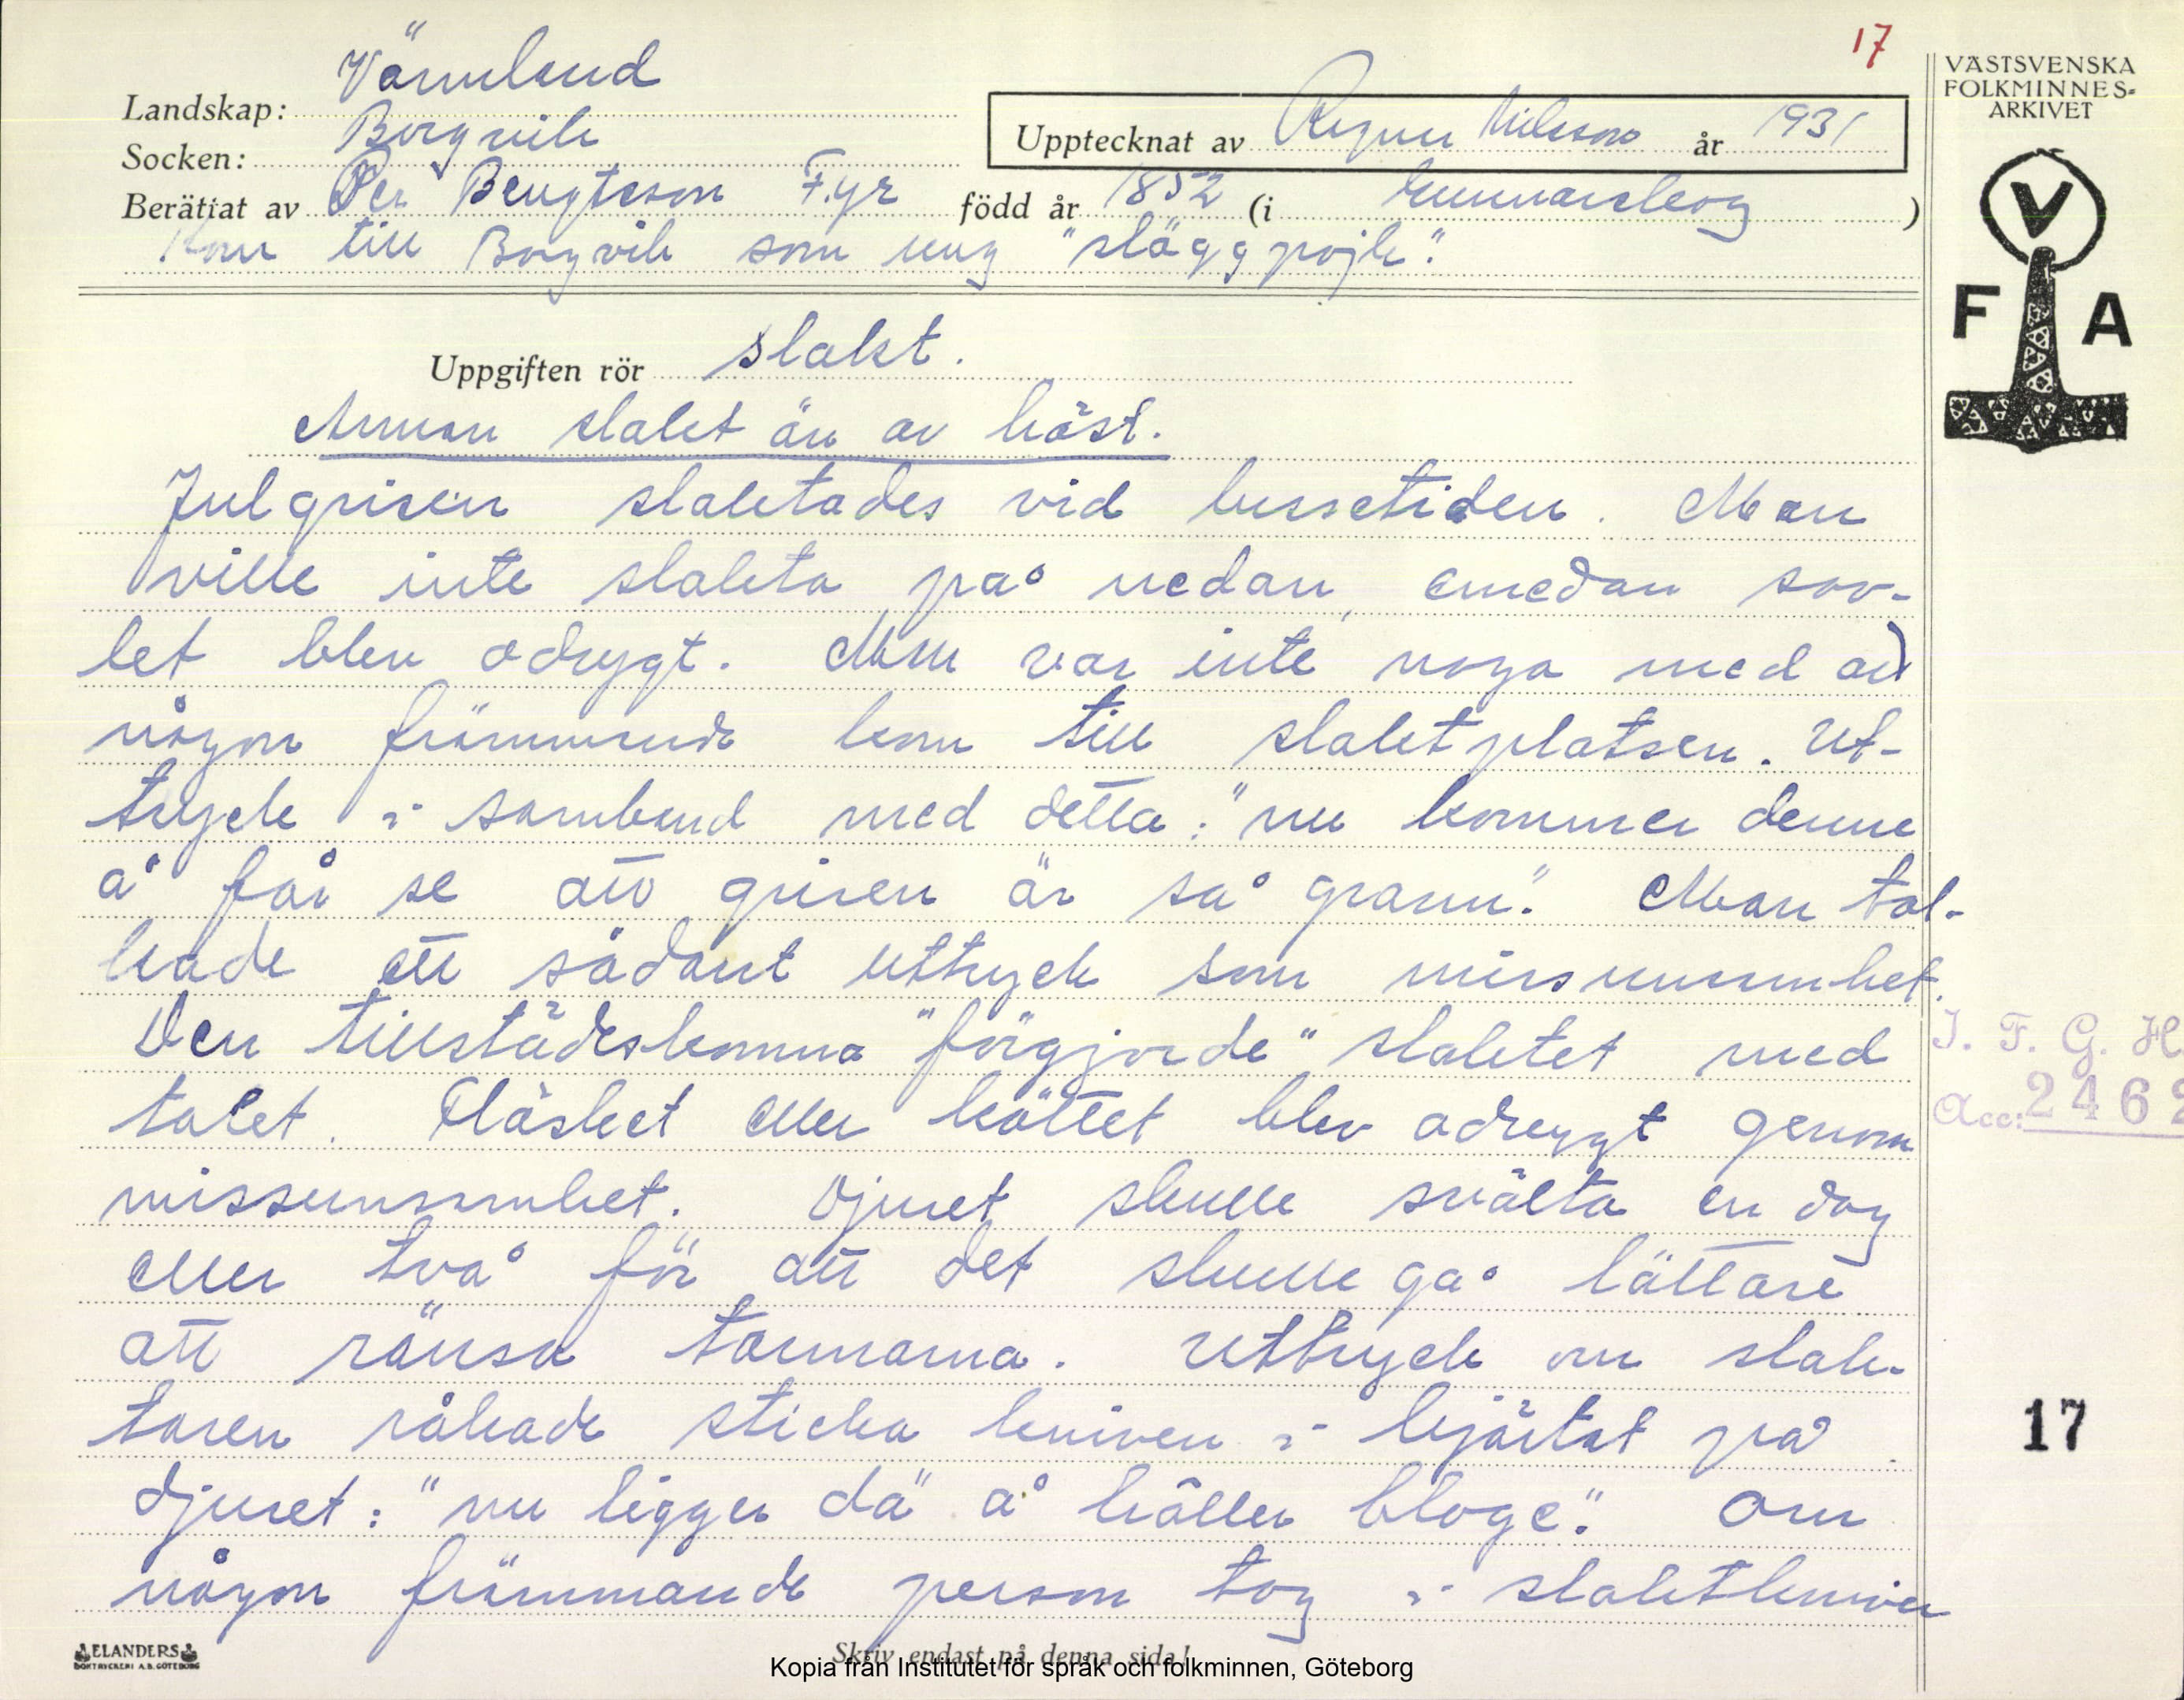 17
VÄSTSVENSKA
FOLKMINNES-
ARKIVET
Landskap: Värmland
Socken: Borgvik
Upptecknat av Ragnar Nilsson år 1931
Berättat av Per Bengtsson Fyr född år 1852 (i Gunnarskog)
Kom till Borgvik som ung "släggpojk".
V
F A
Uppgiften rör slakt.
Annan slakt än av häst.
Julgrisen slaktades vid lussetiden. Man
ville inte slakta på nedan, emedan sov-
let blev odrygt. Man var inte noga med att
någon främmande kom till slaktplatsen. Ut-
tryck i samband med detta: "nu kommer denne
å får se att grisen är så grann". Man tol-
kade ett sådant uttryck som missunnsamhet.
Den tillstädeskomna "förgjorde" slaktet med
talet. Fläsket eller köttet blev odrygt genom
missunnsamhet. Djuret skulle svälta en dag
eller två för att det skulle gå lättare
att ränsa tarmarna. Uttryck om slak-
taren råkade sticka kniven i hjärtat på
djuret: "nu ligger dä å håller bloge". Om
någon främmande person tog i slaktkniven
J. F. G. H.
Acc: 2462
17
ELANDERS
BOKTRYCKERI A.B. GÖTEBORG
Skriv endast på denna sida!
Kopia från Institutet för språk och folkminnen, Göteborg